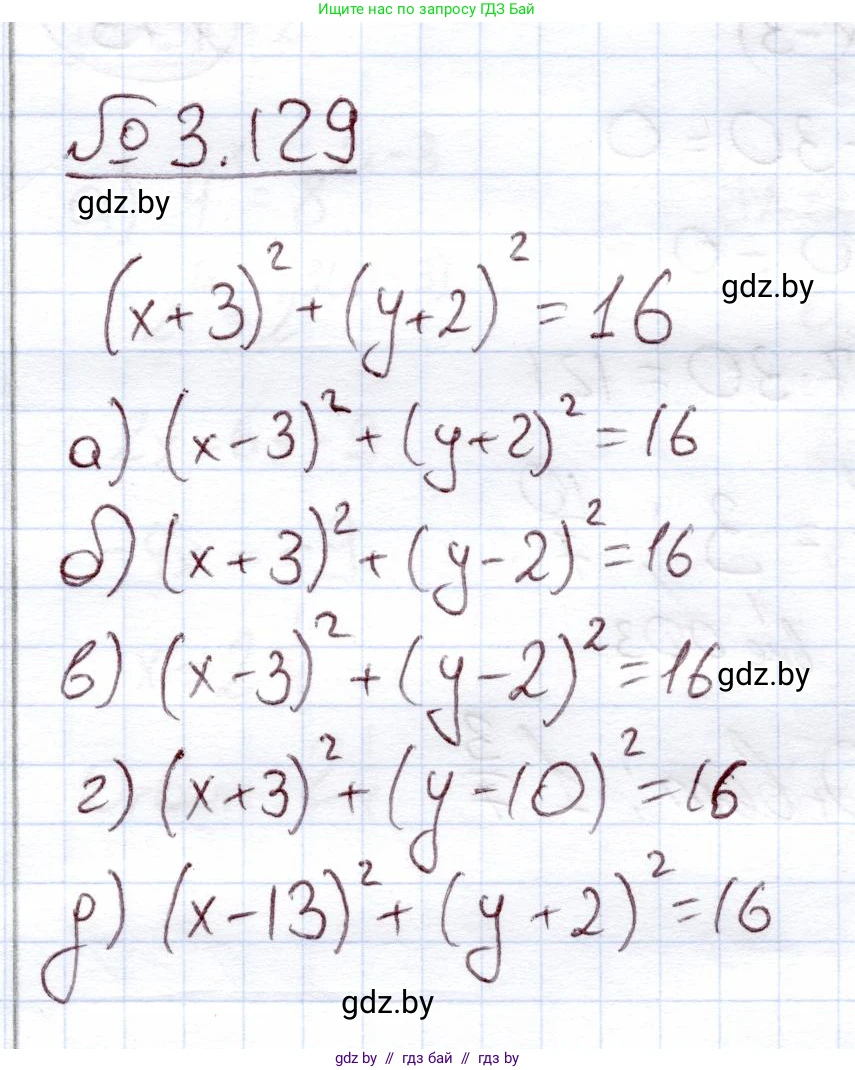 Ищите нас по запросу ГДЗ Бай
№ 3.129
gdz.by
(x+3)² + (y+2)² = 16
gdz.by
а) (x-3)² + (y+2)² = 16
б) (x+3)² + (y-2)² = 16
в) (x-3)² + (y-2)² = 16
gdz.by
г) (x+3)² + (y-10)² = 16
д) (x-13)² + (y+2)² = 16
gdz.by
gdz.by // гдз бай // гдз by